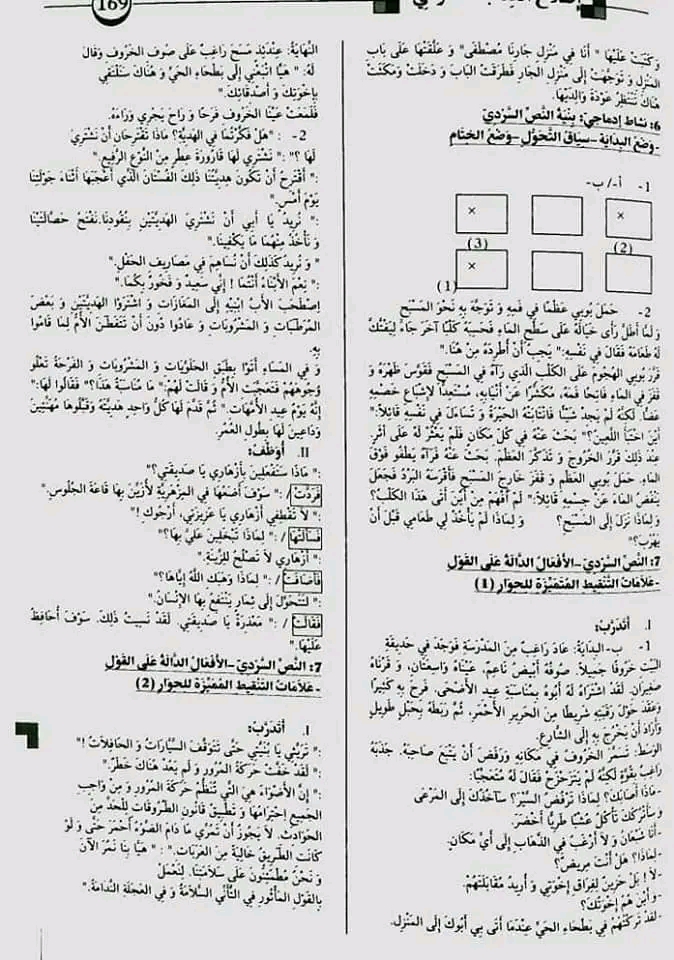 169
وَكَتَبَتْ عَلَيْهَا " أَنَا فِي مَنْزِلِ جَارِنَا مُصْطَفَى" وَ عَلَّقَتْهَا عَلَى بَابِ
المَنْزِلِ وَ تَوَجَّهَتْ إِلَى مَنْزِلِ الجَارِ فَطَرَقَتْ البَابَ وَ دَخَلَتْ وَمَكَثَتْ
هُنَاكَ تَنْتَظِرُ عَوْدَةَ وَالِدَيْهَا.
6: نشاط إدماجيّ: بنيةُ النّصِّ السّرديّ
-وضع البداية -سياق التّحوّل -وضع الختام
1- أ-/ ب-
×
×
(3)
(2)
×
(1)
2- حَمَلَ بُوبِي عَظْمًا فِي فَمِهِ وَ تَوَجَّهَ بِهِ نَحْوَ المَسْبَحِ
وَ لَمَّا أَطَلَّ رَأَى خَيَالَهُ عَلَى سَطْحِ المَاءِ فَحَسِبَهُ كَلْبًا آخَرَ جَاءَ لِيَفْتَكَّ
لَهُ طَعَامَهُ فَقَالَ فِي نَفْسِهِ:" يَجِبُ أَنْ أَطْرُدَهُ مِنْ هُنَا".
قَرَّرَ بُوبِي الهُجُومَ عَلَى الكَلْبِ الَّذِي رَآهُ فِي المَسْبَحِ فَقَوَّسَ ظَهْرَهُ وَ
قَفَزَ فِي المَاءِ فَاتِحًا فَمَهُ، مُكَشِّرًا عَنْ أَنْيَابِهِ، مُسْتَعِدًّا لِإِشْبَاعِ خَصْمِهِ
عَضًّا. لَكِنَّهُ لَمْ يَجِدْ شَيْئًا فَانْتَابَتْهُ الحَيْرَةُ وَ تَسَاءَلَ فِي نَفْسِهِ قَائِلاً:"
أَيْنَ اخْتَبَأَ اللَّعِينُ؟" بَحَثَ عَنْهُ فِي كُلِّ مَكَانٍ فَلَمْ يَعْثُرْ لَهُ عَلَى أَثَرٍ.
عِنْدَ ذَلِكَ قَرَّرَ الخُرُوجَ وَ تَذَكَّرَ العَظْمَ. بَحَثَ عَنْهُ فَرَآهُ يَطْفُو فَوْقَ
المَاءِ. حَمَلَ بُوبِي العَظْمَ وَ قَفَزَ خَارِجَ المَسْبَحِ فَأَقْرَسَهُ البَرْدُ فَجَعَلَ
يَنْفُضُ المَاءَ عَنْ جِسْمِهِ قَائِلاً:" لَمْ أَفْهَمْ مِنْ أَيْنَ أَتَى هَذَا الكَلْبُ؟
وَ لِمَاذَا نَزَلَ إِلَى المَسْبَحِ؟ وَ لِمَاذَا لَمْ يَأْخُذْ لِي طَعَامِي قَبْلَ أَنْ
يَهْرُبَ؟"
7: النّصّ السّرديّ -الأفعال الدّالة على القول
-علامات التّنقيط المتميّزة للحوار (1)
I. أَتَدَرَّبُ:
1- ب-البِدَايَةُ: عَادَ رَاغِبٌ مِنَ المَدْرَسَةِ فَوَجَدَ فِي حَدِيقَةِ
البَيْتِ خَرُوفًا جَمِيلاً. صُوفُهُ أَبْيَضُ نَاعِمٌ، عَيْنَاهُ وَاسِعَتَانِ، وَ قَرْنَاهُ
صَغِيرَانِ. لَقَدْ اشْتَرَاهُ لَهُ أَبُوهُ بِمُنَاسَبَةِ عِيدِ الأَضْحَى. فَرِحَ بِهِ كَثِيرًا
وَعَقَدَ حَوْلَ رَقَبَتِهِ شَرِيطًا مِنَ الحَرِيرِ الأَحْمَرِ، ثُمَّ رَبَطَهُ بِحَبْلٍ طَوِيلٍ
وَأَرَادَ أَنْ يَخْرُجَ بِهِ إِلَى الشَّارِعِ.
الوَسَطُ: تَسَمَّرَ الخَرُوفُ فِي مَكَانِهِ وَرَفَضَ أَنْ يَتْبَعَ صَاحِبَهُ. جَذَبَهُ
رَاغِبٌ بِقُوَّةٍ لَكِنَّهُ لَمْ يَتَزَحْزَحْ فَقَالَ لَهُ مُتَعَجِّبًا:
-مَاذَا أَصَابَكَ؟ لِمَاذَا تَرْفُضُ السَّيْرَ؟ سَآخُذُكَ إِلَى المَرْعَى
وَ سَأَتْرُكُكَ تَأْكُلُ عُشْبًا طَرِيًّا أَخْضَرَ.
-أَنَا شَبْعَانُ وَ لاَ أَرْغَبُ فِي الذَّهَابِ إِلَى أَيِّ مَكَانٍ.
-لِمَاذَا؟ هَلْ أَنْتَ مَرِيضٌ؟
-لاَ ! بَلْ حَزِينٌ لِفِرَاقِ إِخْوَتِي وَ أُرِيدُ مُقَابَلَتَهُمْ.
-وَ أَيْنَ هُمْ إِخْوَتُكَ؟
-لَقَدْ تَرَكْتُهُمْ فِي بَطْحَاءِ الحَيِّ عِنْدَمَا أَتَى بِي أَبُوكَ إِلَى المَنْزِلِ.
النِّهَايَةُ: عِنْدَئِذٍ مَسَحَ رَاغِبٌ عَلَى صُوفِ الخَرُوفِ وَقَالَ
لَهُ: " هَيَّا اتْبَعْنِي إِلَى بَطْحَاءِ الحَيِّ وَ هُنَاكَ سَنَلْتَقِي
بِإِخْوَتِكَ وَ أَصْدِقَائِكَ."
فَلَمَعَتْ عَيْنَا الخَرُوفِ فَرَحًا وَ رَاحَ يَجْرِي وَرَاءَهُ.
2- : "هَلْ فَكَّرْتُمَا فِي الهَدِيَّةِ؟ مَاذَا تَقْتَرِحَانِ أَنْ نَشْتَرِيَ
لَهَا ؟": " نَشْتَرِي لَهَا قَارُورَةَ عِطْرٍ مِنَ النَّوْعِ الرَّفِيعِ."
:" أَقْتَرِحُ أَنْ تَكُونَ هَدِيَّتُنَا ذَلِكَ الفُسْتَانَ الَّذِي أَعْجَبَهَا أَثْنَاءَ جَوْلَتِنَا
يَوْمَ أَمْسِ."
:" نُرِيدُ يَا أَبِي أَنْ نَشْتَرِيَ الهَدِيَّتَيْنِ بِنُقُودِنَا.نَفْتَحُ حَصَّالَتَيْنَا
وَ نَأْخُذُ مِنْهُمَا مَا يَكْفِينَا."
" وَ نُرِيدُ كَذَلِكَ أَنْ نُسَاهِمَ فِي مَصَارِيفِ الحَفْلِ."
:" نِعْمَ الأَبْنَاءُ أَنْتُمَا ! إِنِّي سَعِيدٌ وَ فَخُورٌ بِكُمَا."
اِصْطَحَبَ الأَبُ ابْنَيْهِ إِلَى المَغَازَاتِ وَ اشْتَرَوْا الهَدِيَّتَيْنِ وَ بَعْضَ
المُرَطِّبَاتِ وَ المَشْرُوبَاتِ وَ عَادُوا دُونَ أَنْ تَتَفَطَّنَ الأُمُّ لِمَا قَامُوا
بِهِ.
وَ فِي المَسَاءِ أَتَوْا بِطَبَقِ الحَلَوِيَّاتِ وَ المَشْرُوبَاتِ وَ الفَرْحَةُ تَعْلُو
وُجُوهَهُمْ فَتَعَجَّبَتْ الأُمُّ وَ قَالَتْ لَهُمْ:" مَا مُنَاسَبَةُ هَذَا؟" فَقَالُوا لَهَا:"
إِنَّهُ يَوْمُ عِيدِ الأُمَّهَاتِ." ثُمَّ قَدَّمَ لَهَا كُلُّ وَاحِدٍ هَدِيَّتَهُ وَقَبَّلُوهَا مُهَنِّئِينَ
وَدَاعِينَ لَهَا بِطُولِ العُمْرِ.
II. أُوَظِّفُ:
:" مَاذَا سَتَفْعَلِينَ بِأَزْهَارِي يَا صَدِيقَتِي؟"
فَرَدَّتْ / :" سَوْفَ أَضَعُهَا فِي المِزْهَرِيَّةِ لِأُزَيِّنَ بِهَا قَاعَةَ الجُلُوسِ."
:" لاَ تَقْطِفِي أَزْهَارِي يَا عَزِيزَتِي، أَرْجُوكِ !"
فَسَأَلَتْهَا / :" لِمَاذَا تَبْخَلِينَ عَلَيَّ بِهَا؟"
:" أَزْهَارِي لاَ تَصْلُحُ لِلزِّينَةِ."
فَأَضَافَتْ / :" لِمَاذَا وَهَبَكِ اللَّهُ إِيَّاهَا؟"
:" لِتَتَحَوَّلَ إِلَى ثِمَارٍ يَنْتَفِعُ بِهَا الإِنْسَانُ."
فَقَالَتْ / :" مَعْذِرَةً يَا صَدِيقَتِي. لَقَدْ نَسِيتُ ذَلِكَ. سَوْفَ أُحَافِظُ
عَلَيْهَا."
7: النّصّ السّرديّ -الأفعال الدّالة على القول
- علامات التّنقيط المميّزة للحوار (2)
I. أَتَدَرَّبُ:
:" تَرَيَّثِي يَا بُنَيَّتِي حَتَّى تَتَوَقَّفَ السَّيَّارَاتُ وَ الحَافِلاَتُ !"
:" لَقَدْ خَفَّتْ حَرَكَةُ المُرُورِ وَ لَمْ يَعُدْ هُنَاكَ خَطَرٌ."
:" إِنَّ الأَضْوَاءَ هِيَ الَّتِي تُنَظِّمُ حَرَكَةَ المُرُورِ وَ مِنْ وَاجِبِ
الجَمِيعِ اِحْتِرَامُهَا وَ تَطْبِيقُ قَانُونِ الطُّرُقَاتِ لِلْحَدِّ مِنَ
الحَوَادِثِ. لاَ يَجُوزُ أَنْ تَمُرِّي مَا دَامَ الضَّوْءُ أَحْمَرَ حَتَّى وَ لَوْ
كَانَتْ الطَّرِيقُ خَالِيَةً مِنَ العَرَبَاتِ.": " هَيَّا بِنَا نَمُرُّ الآنَ
وَ نَحْنُ مُطْمَئِنُّونَ عَلَى سَلاَمَتِنَا. لِنَعْمَلْ
بِالقَوْلِ المَأْثُورِ فِي التَّأَنِّي السَّلاَمَةُ وَ فِي العَجَلَةِ النَّدَامَةُ."